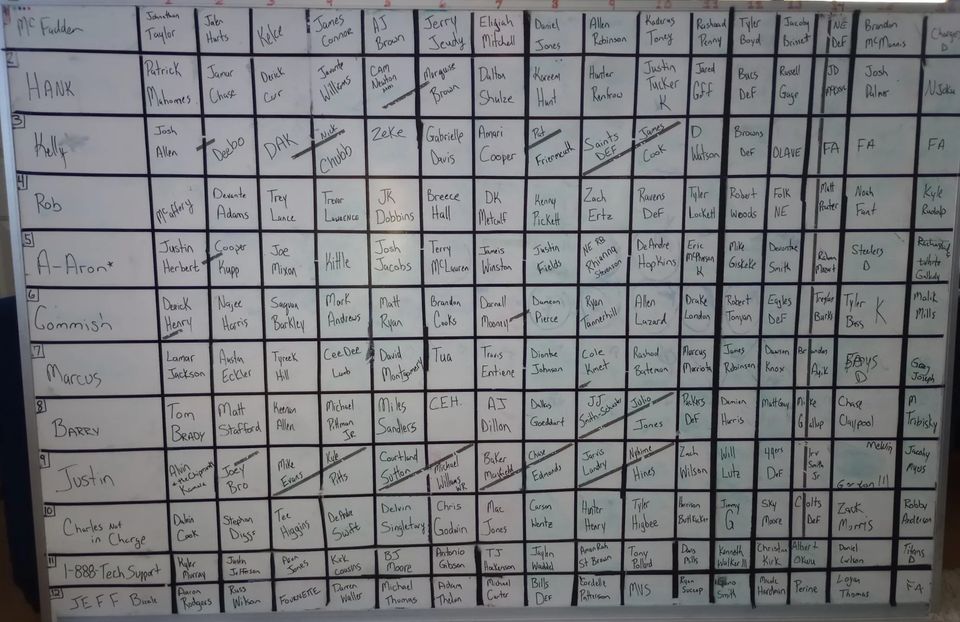 1 2 3 4 5 6 7 8 9 10 11 12 13 14
McFadden Johnathan Taylor Jalen Hurts Kelce James Connor AJ Brown Jerry Jeudy Elijah Mitchell Daniel Jones Allen Robinson Kadarus Toney Rashaad Penny Tyler Boyd Jacoby Brisset NE DEF Brandon McMannis Chargers D
2 HANK Patrick Mahomes Jamar Chase Derick Carr Javonte Williams CAM Newton Marquise Brown Dalton Shulze Kareem Hunt Hunter Renfrow Justin Tucker K Jared Gff Bucs DEF Russell Gage JD Josh Palmer NJoku
3 Kelly Josh Allen Deebo DAK Nick Chubb Zeke Gabrielle Davis Amari Cooper Pat Friermouth Saints DEF James Cook D Watson Browns DEF OLAVE FA FA FA
4 Rob McCaffery Devante Adams Trey Lance Trevor Lawrence JK Dobbins Breece Hall DK Metcalf Kenny Pickett Zach Ertz Ravens DEF Tyler Lockett Robert Woods Folk NE Matt Prater Noah Fant Kyle Rudolp
5 A-Aron* Justin Herbert Cooper Kupp Joe Mixon Kittle Josh Jacobs Terry McLauren Jameis Winston Justin Fields NE RB Rhianna Stevenson DeAndre Hopkins Eric McPherson K Mike Giskeke Devonta Smith Steelers D
6 Commish Derick Henry Najee Harris Saquan Barkley Mark Andrews Matt Ryan Brandon Cooks Darnall Mooney Dameon Pierce Ryan Tannerhill Allen Lazard Drake London Robert Tonyan Eagles DEF Treylon Burks Tyler Bass K Malik Mills
7 Marcus Lamar Jackson Austin Eckler Tyreek Hill CeeDee Lamb David Montgomery Tua Travis Entiene Dionte Johnson Cole Kmet Rashod Bateman Marcus Mariota James Robinson Dawson Knox Brandon Ayik D Greg Joseph
8 BARRY Tom BRADY Matt Stafford Keenan Allen Michael Pittman JR Miles Sandlers C.E.H. AJ Dillon Dallas Goeddart JJ Smith-Schuster Julio Jones Packers DEF Damien Harris Matt Gay Mike Gallup Chase Claypool M Tribisky
9 Justin Alvin Kamara Joey Bro Mike Evans Kyle Pitts Courtland Sutton Michael Williams WR Baker Mayfield Chase Edmands Jarvis Landry Nyhime Hines Zach Wilson Will Lutz 49ers DEF Irv Smith Jr Melvin Gordon!!! Jacoby Myers
10 Charles Not in Charge Dalvin Cook Stephan Diggs Tee Higgins DeAndre Swift Delvin Singletary Chris Godwin Mac Jones Carson Wentz Hunter Henry Tyler Higbee Harrison Buttkicker Jimmy G Sky Moore Colts DEF Zack Morris Robby Anderson
11 1-888-Tech Support Kyler Murray Justin Jefferson Aaron Jones Kirk Cousins DJ Moore Antonio Gibson TJ Hockenson Jaylen Waddel Aman Rah St Brown Tony Pollard Davis Mills Kenneth Walker III Christian Kirk Albert Okwu Daniel Carlson Titans D
12 JEFF Aaron Rodgers Russ Wilson FOURNETTE Darren Waller Michael Thomas Adam Thelon Michael Carter Bills DEF Cordelle Patterson MVS Ryan Succop Smith Mecole Hardman Perine Logan Thomas FA